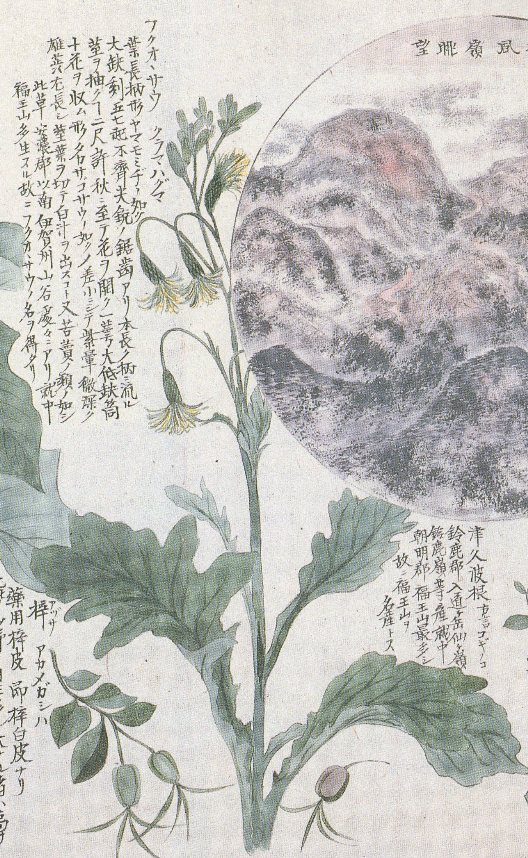 嶺眺望
フクオヽサウ クラマハグマ
葉長柄形ヤマモミヂノ如ク
大鈌刻五七起不齊尖鋭ノ鋸歯アリ本長ノ柄
莖ヲ抽クー二尺許秋ニ至テ花ヲ開ク一萼大低鈌筒
十花ヲ収ム形名サコサウノ如ノ差小ニシテ紫蕚微深ク
雄蕊尤長シ莖葉ヲ切テ白汁ヲ出スコト又苦蕒ノ類ノ如シ
此草安濃郡以南伊賀州山谷處々ニアリ就中
福王山多生スル故ニフクオサウノ名ヲ得タリ
津久波根 方言コギノコ
鈴鹿郡入道岳仙ヶ嶺
鈴鹿嶺等ニ産就中
朝明郡福王山最多シ
故ニ福王山ヲ
名産トス
梓 アヅサ アカメガシハ
藥用梓皮 即梓白皮ナリ